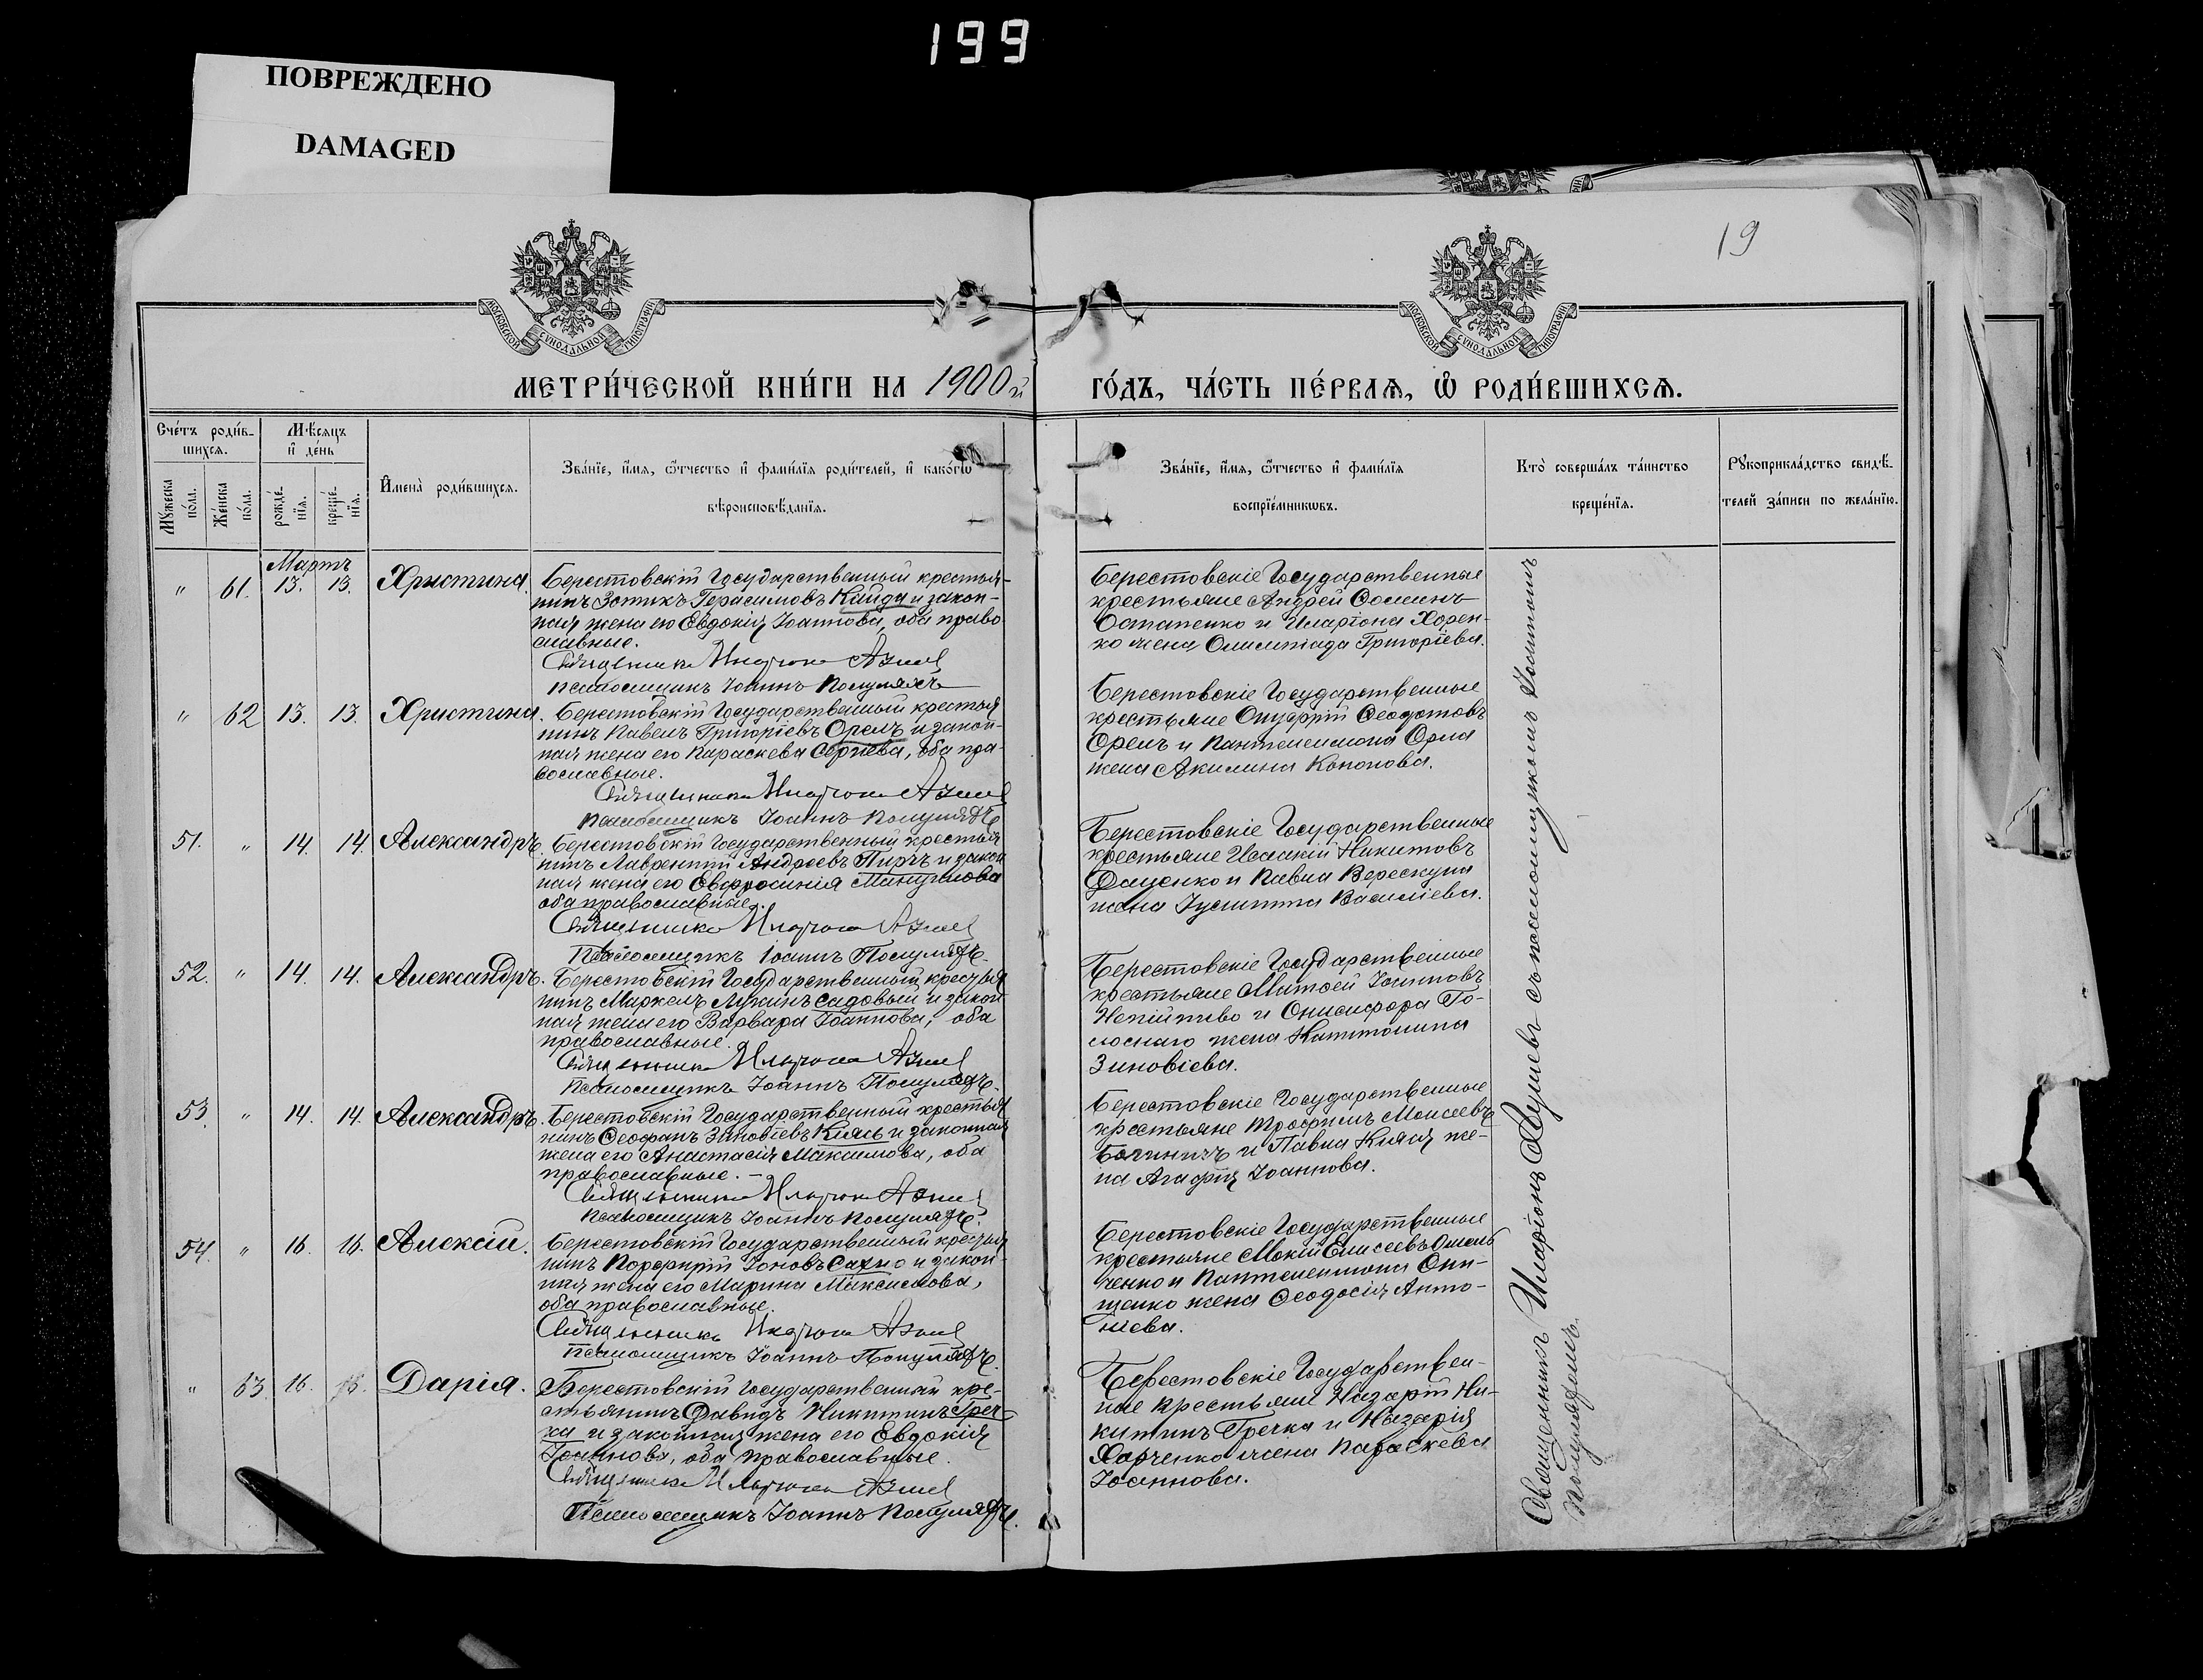 199
ПОВРЕЖДЕНО
DAMAGED
19
МОСКОВСКОЙ СУНОДАЛЬНОЙ ТИПОГРАФІИ
МОСКОВСКОЙ СУНОДАЛЬНОЙ ТИПОГРАФІИ
МЕТРИ́ЧЕСКОЙ КНИ́ГИ НА 1900й ГО́ДЪ, ЧА́СТЬ ПЕ́РВАѦ, Ѡ РОДИ́ВШИХСѦ.
Сче́тъ роди́в-
шихся.
Мѣ́сяцъ
и де́нь
Му́жеска
по́ла.
Же́нска
по́ла.
рожде́-
нїя.
креще́-
нїя.
Имена̀ роди́вшихся.
Зва́нїе, и́мя, ѻ҆́тчество и фами́лїя роди́телей, и како́гѡ
вѣроисповѣ́данїя.
Зва́нїе, и́мя, ѻ҆́тчество и фами́лїя
воспрїе́мниковъ.
Кто̀ соверша́лъ та́инство
креще́нїя.
Рукоприкла́дство свидѣ́-
телей за́писи по жела́нїю.
Мартъ
" 61. 13. 13. Христина.
Берестовскій Государственный крестья-
нинъ Зотикъ Герасимовъ Кайда и закон-
ная жена его Евдокія Іоаннова, оба право
славные.
Священникъ Иларіонъ
Псаломщикъ Іоаннъ Полуляхъ
Берестовскіе Государственные
крестьяне Андрей Ѳоминъ
Остапенко и Иларіона Хорен-
ко жена Олимпіада Григоріева.
" 62 13. 13. Христина.
Берестовскій Государственный крестья
нинъ Павелъ Григоріевъ Орелъ и закон-
ная жена его Параскева Сергіева, оба пра-
вославные.
Священникъ Иларіонъ
Псаломщикъ Іоаннъ Полуляхъ
Берестовскіе Государственные
крестьяне Онуфрій Ѳеодотовъ
Орелъ и Пантелеимона Орла
жена Акилина Кононова.
51. " 14. 14. Александръ.
Берестовскій Государственный крестья
нинъ Лаврентій Андреевъ Пирчъ и закон
ная жена его Евфросинія Мануилова
оба православные.
Священникъ Иларіонъ
Псаломщикъ Іоаннъ Полуляхъ.
Берестовскіе Государственные
крестьяне Исаакій Никитовъ
Даценко и Павла Верескуна
жена Іулитта Василіева.
52. " 14. 14. Александръ.
Берестовскій Государственный крестья
нинъ Маркелъ Лукинъ Садовый и закон
ная жена его Варвара Іоаннова, оба
православные.
Священникъ Иларіонъ
Псаломщикъ Іоаннъ Полуляхъ.
Берестовскіе Государственные
крестьяне Матѳей Іоанновъ
Непійпиво и Онисифора Го-
лоснаго жена Капитолина
Зиновіева.
53. " 14. 14. Александръ.
Берестовскій Государственный крестья
нинъ Ѳеофанъ Зиновіевъ Князь и законная
жена его Анастасія Максимова, оба
православные. -
Священникъ Иларіонъ
Псаломщикъ Іоаннъ Полуляхъ.
Берестовскіе Государственные
крестьяне Трофимъ Моисеевъ
и Павла Князя же-
на Агафія Іоаннова.
54. " 16. 16. Алексій.
Берестовскій Государственный крестья
нинъ Порфирій Іоновъ Сахно и закон-
ная жена его Марина Максимова,
оба православные.
Священникъ Иларіонъ
Псаломщикъ Іоаннъ Полуляхъ.
Берестовскіе Государственные
крестьяне Мокій Елисеевъ Омель
ченко и Пантелеимона Они-
щенко жена Ѳеодосія Анто-
ніева.
" 63. 16. 16. Дарія.
Берестовскій Государственный кре-
стьянинъ Давидъ Никитинъ Греч
ка и законная жена его Евдокія
Іоаннова, оба православные.
Священникъ Иларіонъ
Псаломщикъ Іоаннъ Полуляхъ.
Берестовскіе Государствен-
ные крестьяне Назарій Ни-
китинъ Гречка и Назарія
Харченко жена Параскева
Іоаннова.
Священникъ Иларіонъ съ псаломщикомъ Іоанномъ
Полуляхомъ.